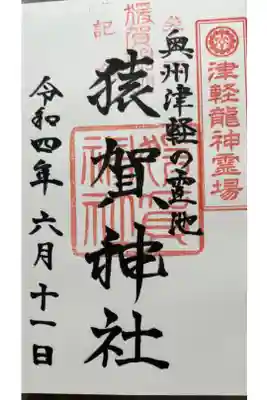 津軽龍神霊場
奥州津軽の霊地
猿賀神社
令和四年六月十一日